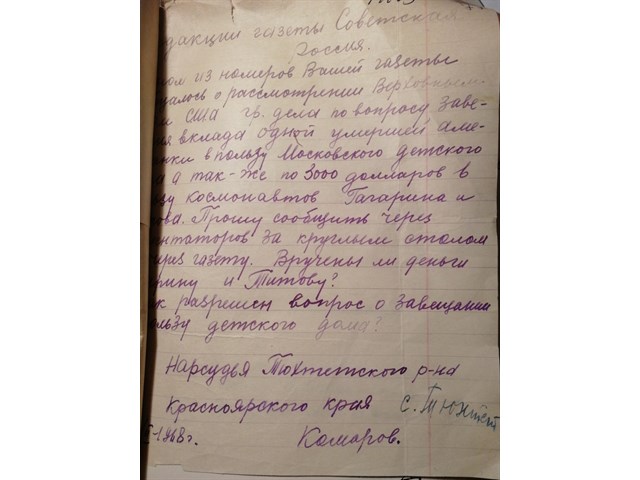 дакции газеты Советская
Россия.
ном из номеров Вашей газеты
щалось о рассмотрении Верховным
м США гр. дела по вопросу заве-
ия вклада одной умершей аме-
нки в пользу Московского детского
а а так-же по 3000 долларов в
зу космонавтов Гагарина и
ова. Прошу сообщить через
ентаторов за круглым столом
ерез газету. Вручены ли деньги
рину и Титову?
к разрешен вопрос о завещании
ользу детского дома?
Нарсудья Тюхтетского р-на
Красноярского края с. Тюхтет
-1968г. Комаров.